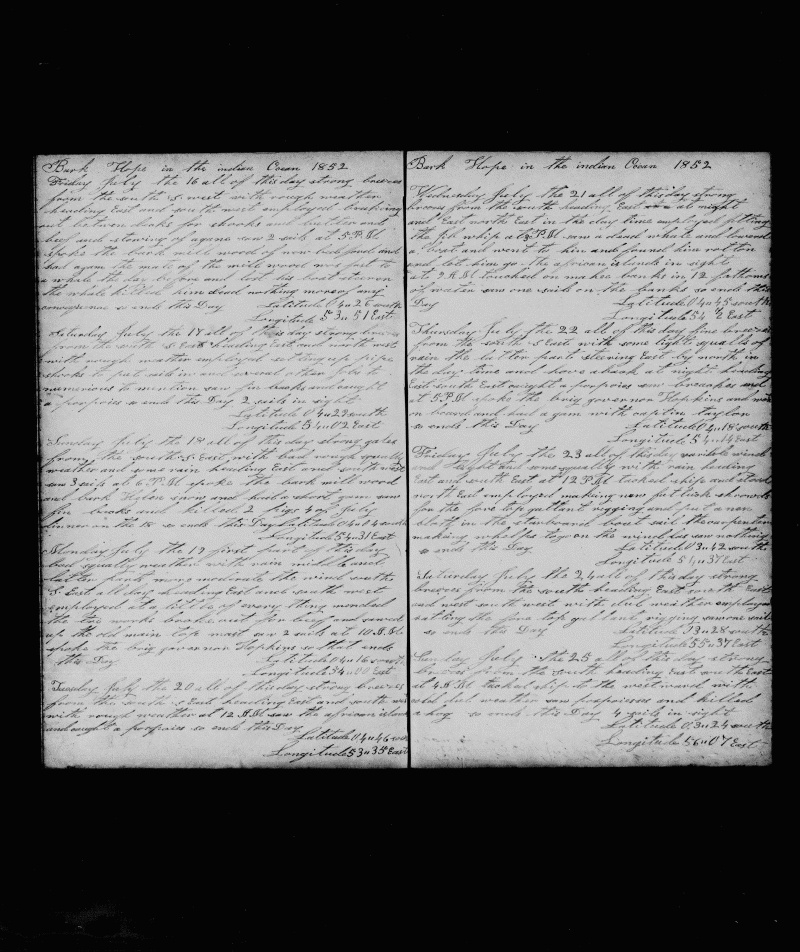 Bark Hope in the indian Ocean 1852
Friday July the 16 all of this day strong breezes
from the south S west with rough weather
heading East and south west employed breaking
out between decks for shooks and butter and
beef and stowing of again saw 2 sails at 5 P.M
spoke the bark mill wood of new bedford and
had a gam the mate of the mill wood was fast to
a whale the day before and lost his boat steerer
the whale killed him dead nothing more of any
consequence so ends this Day Latitude 04 u 26 south
Longitude 53 u 51 East
Saturday July the 17 all of this day strong breezes
from the south S East heading East and south west
with rough weather employed setting up pipe
shooks to put in and several other jobs to
numerious to mention saw fin backs and caught
a porpoies so ends this Day 2 sails in sight
Latitude 04 u 23 south
Longitude 54 u 02 East
Sunday July the 18 all of this day strong gales
from the south S East with bad rough squally
weather and some rain heading East and south west
saw 3 sails at 6 P.M spoke the bark mill wood
and bark Helen snow and had a short gam saw
fin backs and killed 2 pigs 4 of July
dinner on the 18 so ends this Day Latitude 04 u 04 south
Longitude 54 u 31 East
Monday July the 19 first part of this day
bad squally weather with rain middle and
latter parts more moderate the wind south
S. East all day heading East and south west
employed at a little of every thing mended
the two works broke out for beef and sawed
up the old main top mast saw 2 sails at 10 A.M
spoke the brig governor Hopkins so that ends
this Day Latitude 04 u 16 south
Longitude 54 u 00 East
Tuesday July the 20 all of this day strong breezes
from the south S East heading East and south west
with rough weather at 12 A.M saw the african islands
and caught a porpoies so ends this Day
Latitude 04 u 46 south
Longitude 53 u 35 East
Bark Hope in the indian Ocean 1852
Wednesday July the 21 all of this day strong
breezes from the south heading East at night
and East north East in the day time employed fitting
the jib whip at 3 P.M saw a dead whale and lowered
a boat and went to him and found him rotten
and left him go the african islands in sight
at 2 P.M tacked on mahee banks in 12 fathoms
of water saw one sail on the banks so ends this
Day Latitude 04 u 45 south
Longitude 54 u 6 East
Thursday July the 22 all of this day fine breezes
from the south S East with some light squalls of
rain the latter part steering East by north in
the day time and hove aback at night heading
East south East caught a porpoies saw breaches and
at 5 P.M spoke the brig governor Hopkins and went
on board and had a gam with captin taylor
so ends this Day Latitude 04 u 18 south
Longitude 54 u 14 East
Friday July the 23 all of this day variable winds
and light and some squalls with rain heading
East and south East at 12 P.M tacked ship and stood
north East employed making new futtuck shrowds
for the fore top gallant rigging and put a new
cloth in the starboard boat sail the carpenter
making whelps to go on the windlass saw nothing
so ends this Day Latitude 03 u 42 south
Longitude 54 u 37 East
Saturday July the 24 all of this day strong
breezes from the south heading East south East
and west south west with dul weather employed
ratling the fore top gallant rigging saw one sail
so ends this Day Latitude 03 u 28 south
Longitude 55 u 37 East
Sunday July the 25 all of this day strong
breezes from the south heading East south East
at 4 P.M tacked ship to the westward with
dul weather saw porpoises and killed
a hog so ends this Day 4 sails in sight
Latitude 03 u 24 south
Longitude 56 u 07 East